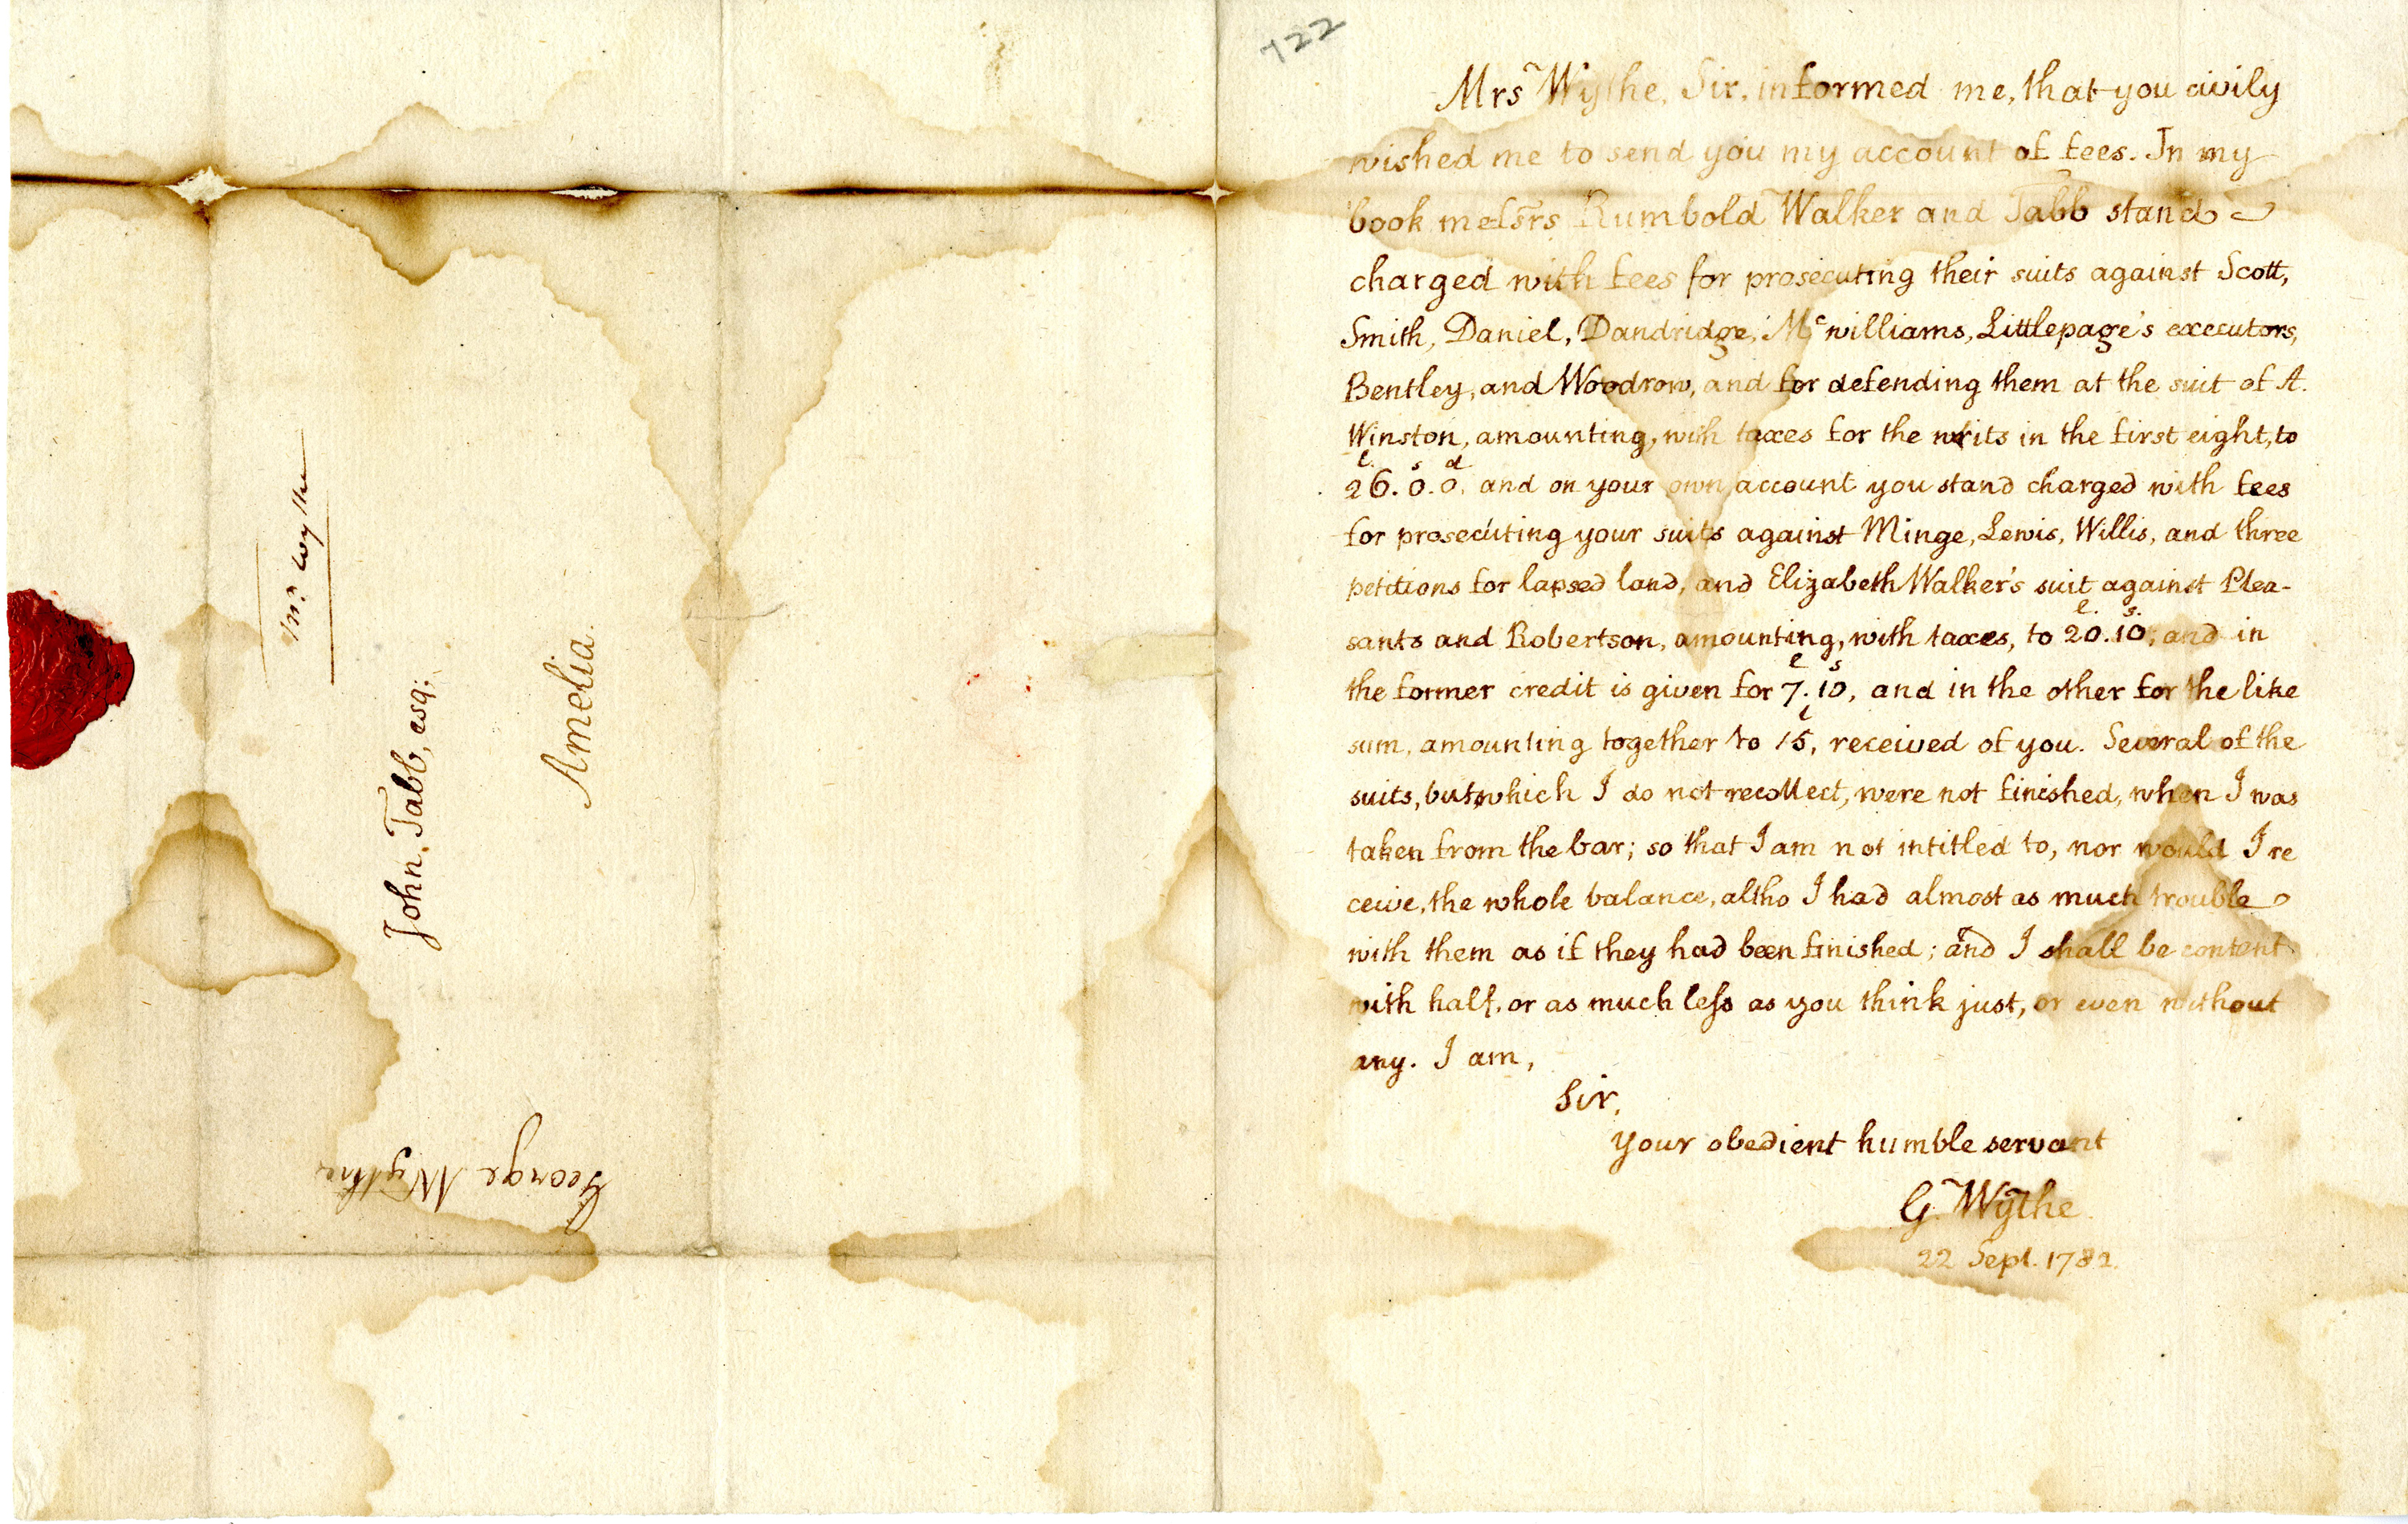 Mr. Wythe
John Tabb, esq;
Amelia.
George Wythe
722
Mrs Wythe, Sir, informed me, that you civily
wished me to send you my account of fees. In my
book messrs Rumbold Walker and Tabb stand
charged with fees for prosecuting their suits against Scott,
Smith, Daniel, Dandridge, Mcwilliams, Littlepage's executors,
Bentley, and Woodrow, and for defending them at the suit of A.
Winston, amounting, with taxes for the writs in the first eight, to
l. s d
26. 0. 0. and on your own account you stand charged with fees
for prosecuting your suits against Minge, Lewis, Willis, and three
petitions for lapsed land, and Elizabeth Walker's suit against Plea-
l. s.
sants and Robertson, amounting, with taxes, to 20. 10; and in
l s
the former credit is given for 7. 10, and in the other for the like
l
sum, amounting together to 15, received of you. Several of the
suits, but which I do not recollect, were not finished, when I was
taken from the bar; so that I am not intitled to, nor would I re
ceive, the whole balance, altho I had almost as much trouble
with them as if they had been finished; and I shall be content
with half, or as much less as you think just, or even without
any. I am,
Sir,
your obedient humble servant
G. Wythe
22 Sept. 1782.